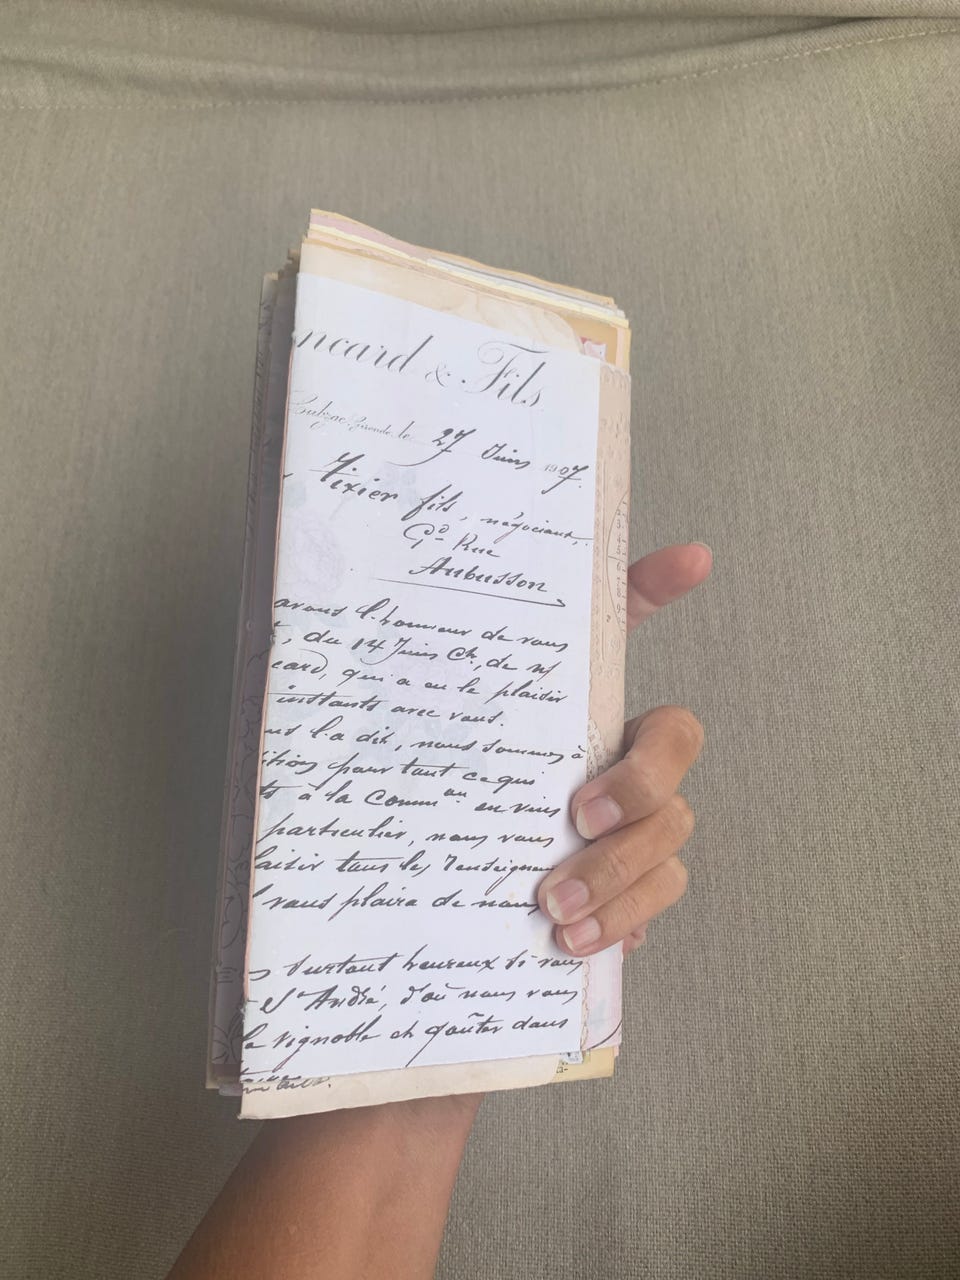 ncard & Fils
Cubzac-Gironde le 27 Juin 1907.
Tixier fils, négociant,
Gde Rue
Aubusson
avons l'honneur de vous
, du 14 Juin Ct, de N/
card, qui a eu le plaisir
instants avec vous.
us l'a dit, nous sommes à
ition pour tout ce qui
ts à la Common en vins
particulier, nous vous
laisir tous les renseignem
l vous plaira de nous
s surtout heureux si vous
St André, d'où nous vous
le vignoble et goûter dans